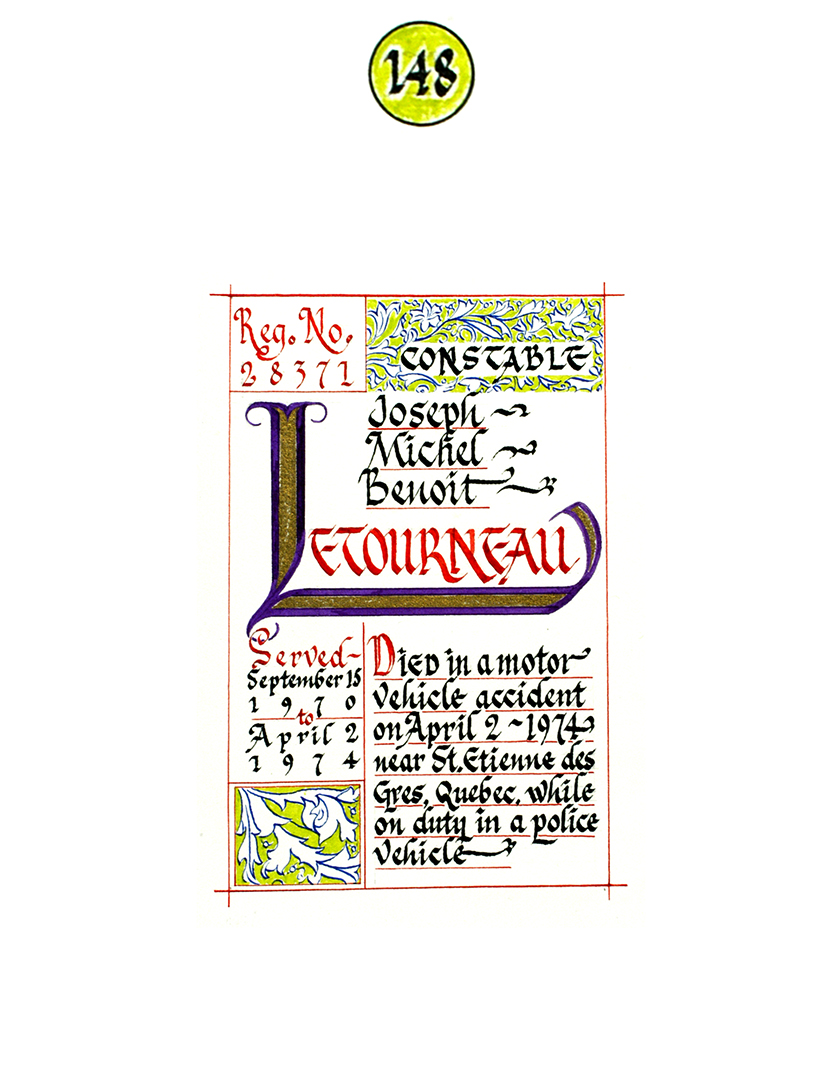 148
Reg. No.
28371
CONSTABLE
Joseph
Michel
Benoit
LETOURNEAU
Served-
September 15
1970
to
April 2
1974
Died in a motor
vehicle accident
on April 2 ~ 1974
near St. Etienne des
Gres, Quebec, while
on duty in a police
vehicle